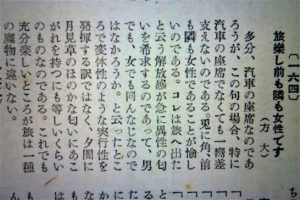 〔一六四〕
旅樂し前も隣も女性です
(方大)
多分、汽車の座席なのであ
ろうが、この句の場合、特に
汽車の座席でなくても一概差
支えないのである。現に角、前
も隣も女性であることが愉し
いのである。コレは旅へ出た
と云う解放感が急に異性の匂
いを希求するのであつて、男
でも、女でも同んなじなので
はなかろうか。と云つたとこ
ろで変体性のような実行性を
発揮する訳ではなく、夕闇に
月見草のほのかな匂いにあこ
がれを持つにも等しいくらい
のものなのである。これでも
充分楽しいところが旅は一種
の魔物に違いない。